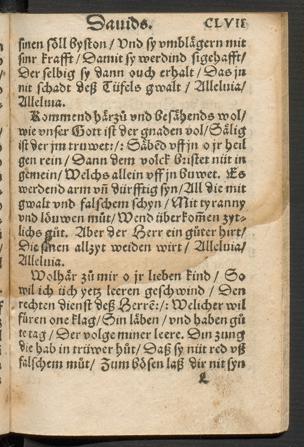 Dauids. CLVII
sinen söll byston / Vnd sy vmblägern mit
sinr krafft / Damit sy werdind sigehafft /
Der selbig sy dann ouch erhalt / Das jn
nit schadt deß Tüfels gwalt / Alleluia /
Alleluia.
Kommend härzů vnd besähends wol /
wie vnser Gott ist der gnaden vol / Sälig
ist der jm truwet :/: Säböd vff jn o jr heil
gen rein / Dann dem volck bristet nüt in
gemein / Welchs allein vff jn buwet. Es
werdend arm vñ dürfftig syn / All die mit
gwalt vnd falschem schyn / Mit tyranny
vnd löuwen můt / Wend überkom̃en zyt-
lichs gůt. Aber der Herr ein gůter hirt /
Die sinen allzyt weiden wirt / Alleluia /
Alleluia.
Wolhär zů mir o jr lieben kind / So
wil ich üch yetz leeren geschwind / Den
rechten dienst deß Herrē :/: Welicher wil
füren one klag / Sin läben / vnd haben gů
te tag / Der volge miner leere. Din zung
die hab in trüwer hůt / Daß sy nüt red vß
falschem můt / Zum bösen laß dir nit syn